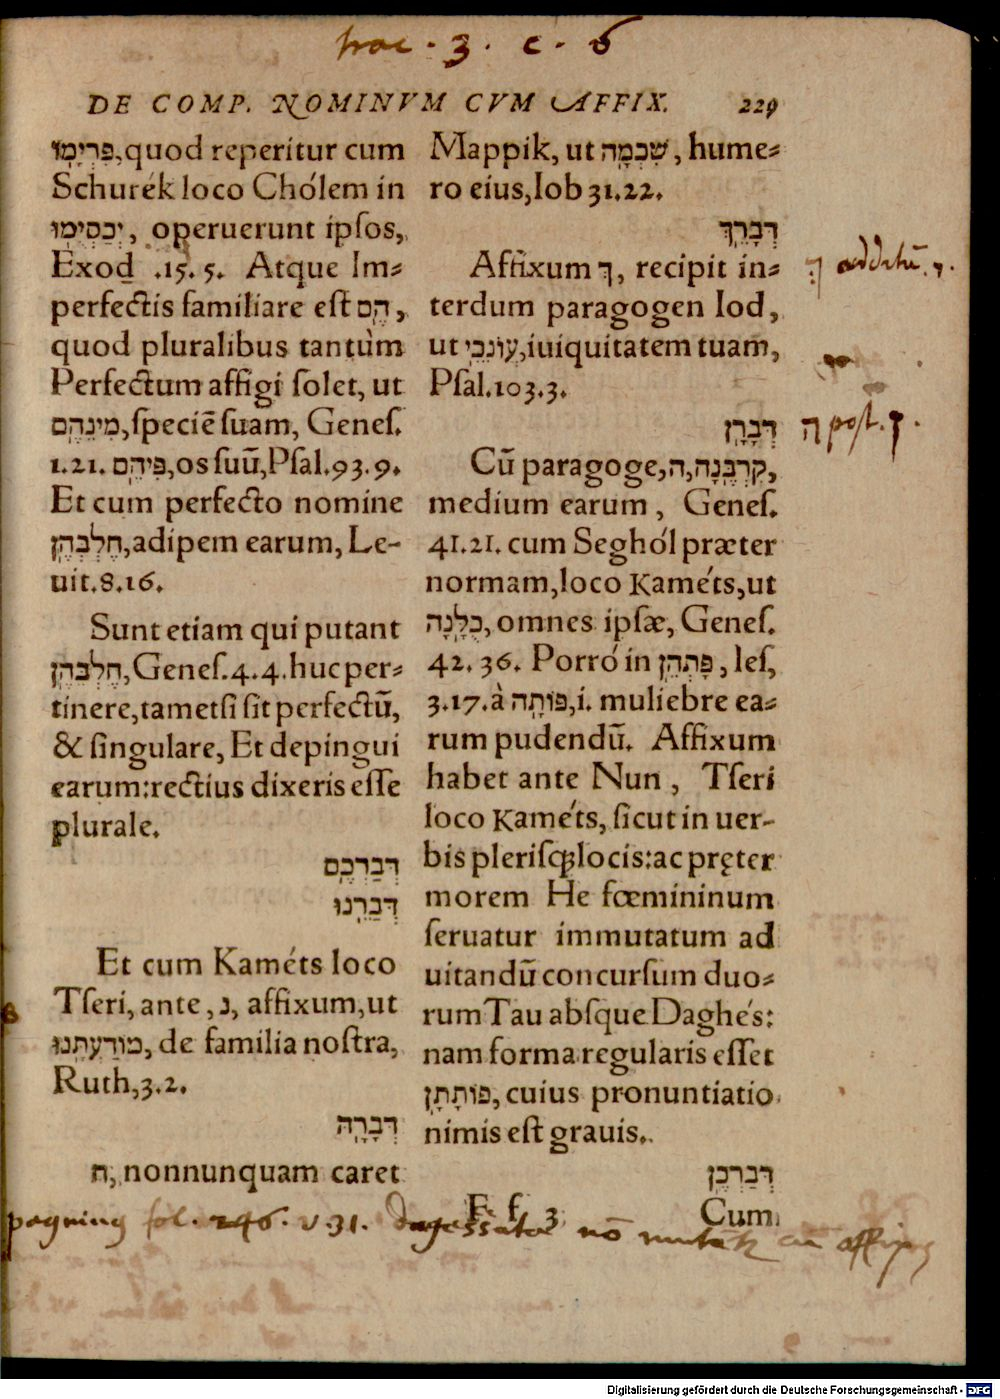 trac. 3. c. 6
DE COMP. NOMINVM CVM AFFIX. 229
פְּרִימוּ, quod reperitur cum
Schurék loco Chólem in
יְכַסְיֻמוּ, operuerunt ipſos,
Exod .15. 5. Atque Im=
perfectis familiare eſt הֶם,
quod pluralibus tantùm
Perfectum affigi ſolet, ut
מִינֵהֶם, ſpeciē ſuam, Geneſ.
1.21. פִּיהֶם, os ſuū, Pſal.93.9.
Et cum perfecto nomine
חֶלְבְּהֶן, adipem earum, Le-
uit.8.16.
Sunt etiam qui putant
חֶלְבֵהֶן, Geneſ.4.4. huc per=
tinere, tametſi ſit perfectū,
& ſingulare, Et depingui
earum: rectius dixeris eſſe
plurale.
דְּבַרְכֶם
דְּבָרֵנוּ
Et cum Kaméts loco
Tſeri, ante, נ, affixum, ut
מוֹדַעְתָּנוּ, de familia noſtra,
Ruth,3.2.
דְּבָרָהּ
ה, nonnunquam caret
Mappik, ut שִׁכְמָה, hume=
ro eius, Iob 31.22.
דְּבָרֵךְ
Affixum ךְ, recipit in=
terdum paragogen Iod,
ut עֲוֹנֵכִי, iuiquitatem tuam,
Pſal.103.3.
דְּבָרָן
Cū paragoge, ה, קִרְבֶּנָה,
medium earum, Geneſ.
41.21. cum Seghól præter
normam, loco Kaméts, ut
כֻּלָּנָה, omnes ipſæ, Geneſ.
42. 36. Porró in פָּתְהֵן, Ieſ,
3.17. à פּוֹתָה, i. muliebre ea=
rum pudendū. Affixum
habet ante Nun, Tſeri
loco Kaméts, ſicut in uer-
bis pleriſq; locis: ac pręter
morem He fœmininum
ſeruatur immutatum ad
uitandū concurſum duo=
rum Tau abſque Daghés:
nam forma regularis eſſet
פּוֹתָתָן, cuius pronuntiatio
nimis eſt grauis.
דְּבַרְכֶן
F f 3 Cum
ךְ additū. י.
ה poſt. ן.
pagninus fol. 246. v. 31. dagessatae nō
Digitalisierung gefördert durch die Deutsche Forschungsgemeinschaft - DFG